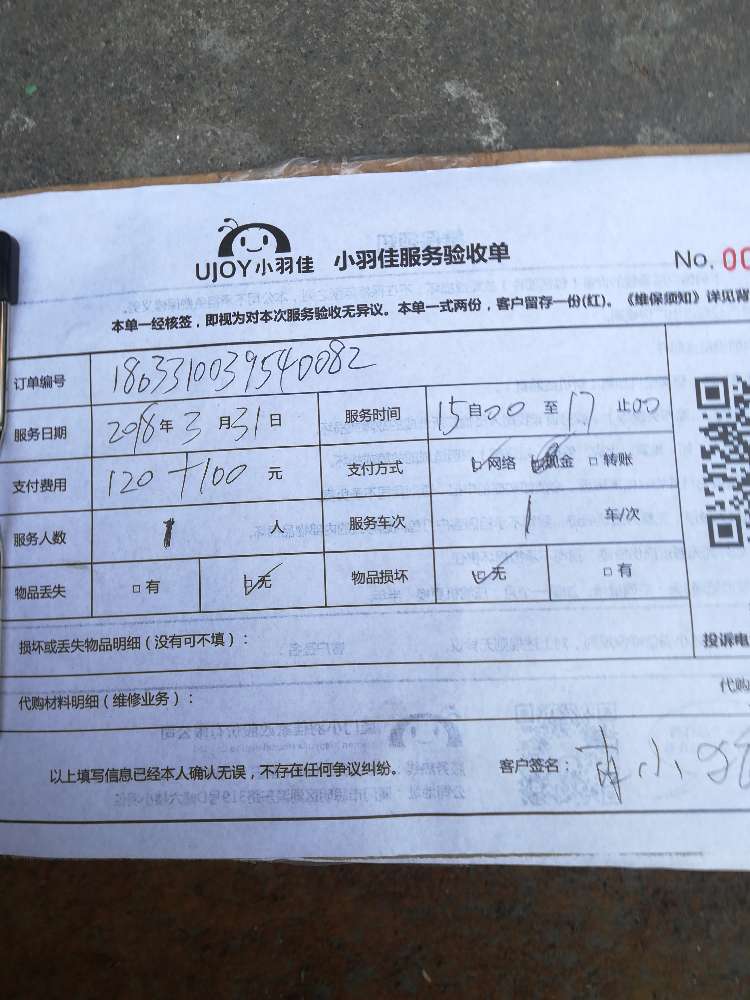 UJOY小羽佳 小羽佳服务验收单 No. 00
本单一经核签，即视为对本次服务验收无异议。本单一式两份，客户留存一份(红)。《维保须知》详见背
订单编号 1803310039540082
服务日期 2018年3月31日 服务时间 15自00至17止00
支付费用 120+100元 支付方式 网络 现金 转账
服务人数 1人 服务车次 1车/次
物品丢失 有 无 物品损坏 无 有
损坏或丢失物品明细（没有可不填）： 投诉电
代购材料明细（维修业务）： 代购
以上填写信息已经本人确认无误，不存在任何争议纠纷。 客户签名：